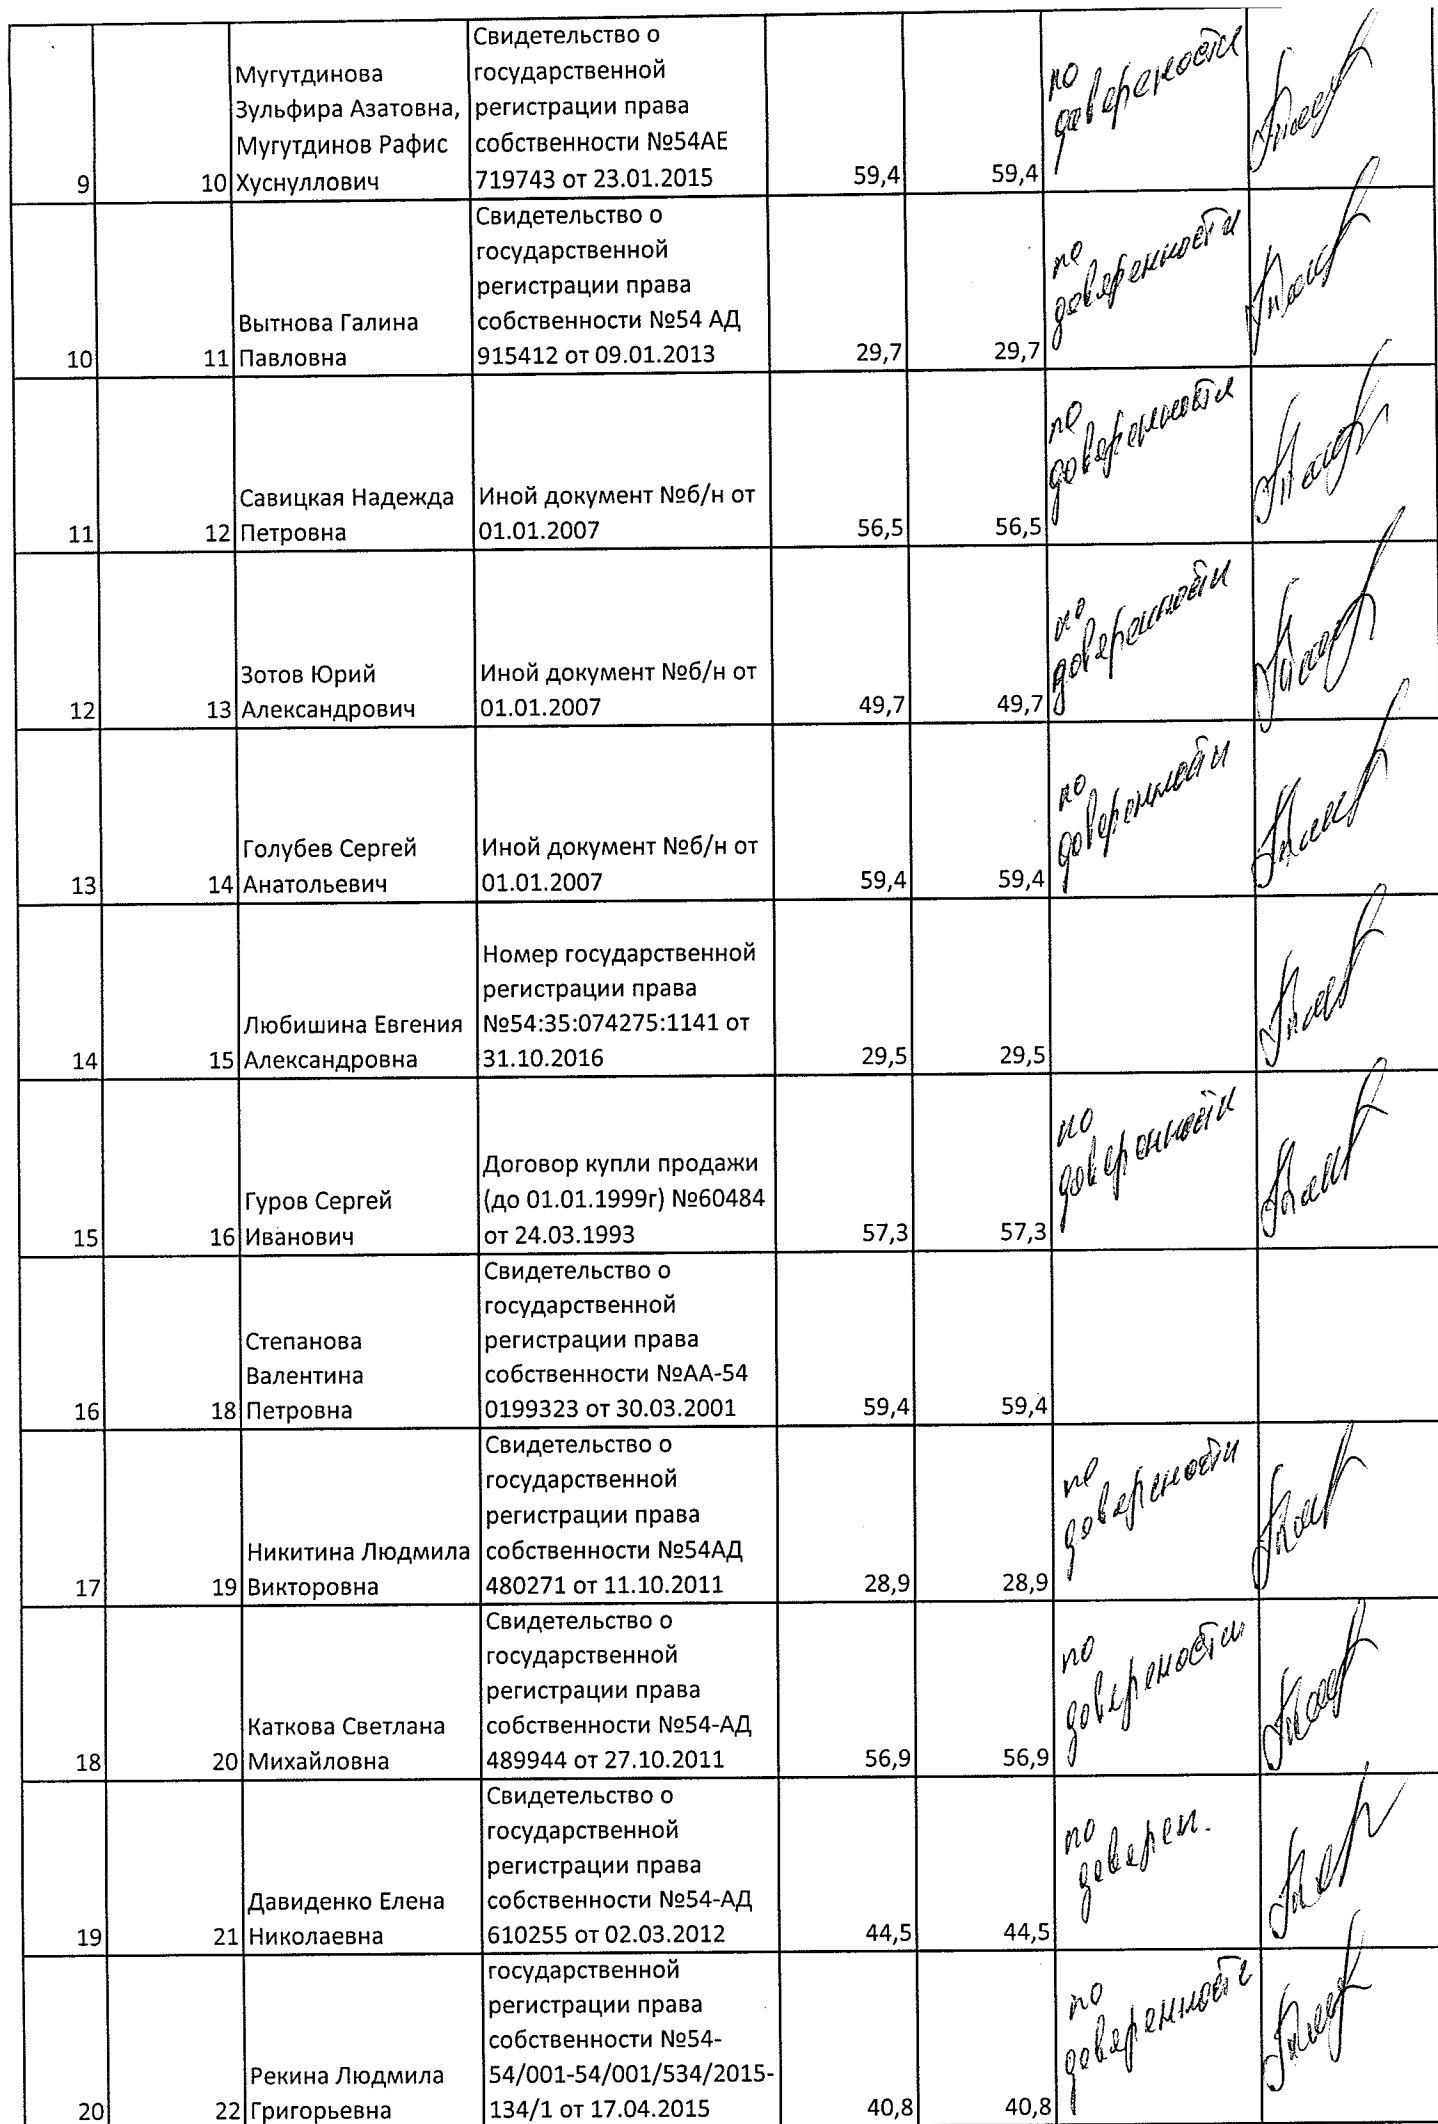 Мугутдинова
Зульфира Азатовна,
Мугутдинов Рафис
Хуснуллович
9
10
Свидетельство о
государственной
регистрации права
собственности №54АЕ
719743 от 23.01.2015
59,4
59,4
по
доверености
10
11
Вытнова Галина
Павловна
Свидетельство о
государственной
регистрации права
собственности №54 АД
915412 от 09.01.2013
29,7
29,7
по
доверенности
11
12
Савицкая Надежда
Петровна
Иной документ №б/н от
01.01.2007
56,5
56,5
по
доверенности
12
13
Зотов Юрий
Александрович
Иной документ №б/н от
01.01.2007
49,7
49,7
по
доверенности
13
14
Голубев Сергей
Анатольевич
Иной документ №б/н от
01.01.2007
59,4
59,4
по
доверенности
14
15
Любишина Евгения
Александровна
Номер государственной
регистрации права
№54:35:074275:1141 от
31.10.2016
29,5
29,5
15
16
Гуров Сергей
Иванович
Договор купли продажи
(до 01.01.1999г) №60484
от 24.03.1993
57,3
57,3
по
доверенности
16
18
Степанова
Валентина
Петровна
Свидетельство о
государственной
регистрации права
собственности №АА-54
0199323 от 30.03.2001
59,4
59,4
17
19
Никитина Людмила
Викторовна
Свидетельство о
государственной
регистрации права
собственности №54АД
480271 от 11.10.2011
28,9
28,9
по
доверености
18
20
Каткова Светлана
Михайловна
Свидетельство о
государственной
регистрации права
собственности №54-АД
489944 от 27.10.2011
56,9
56,9
по
доверености
19
21
Давиденко Елена
Николаевна
Свидетельство о
государственной
регистрации права
собственности №54-АД
610255 от 02.03.2012
44,5
44,5
по
доверен.
20
22
Рекина Людмила
Григорьевна
государственной
регистрации права
собственности №54-
54/001-54/001/534/2015-
134/1 от 17.04.2015
40,8
40,8
по
доверенности